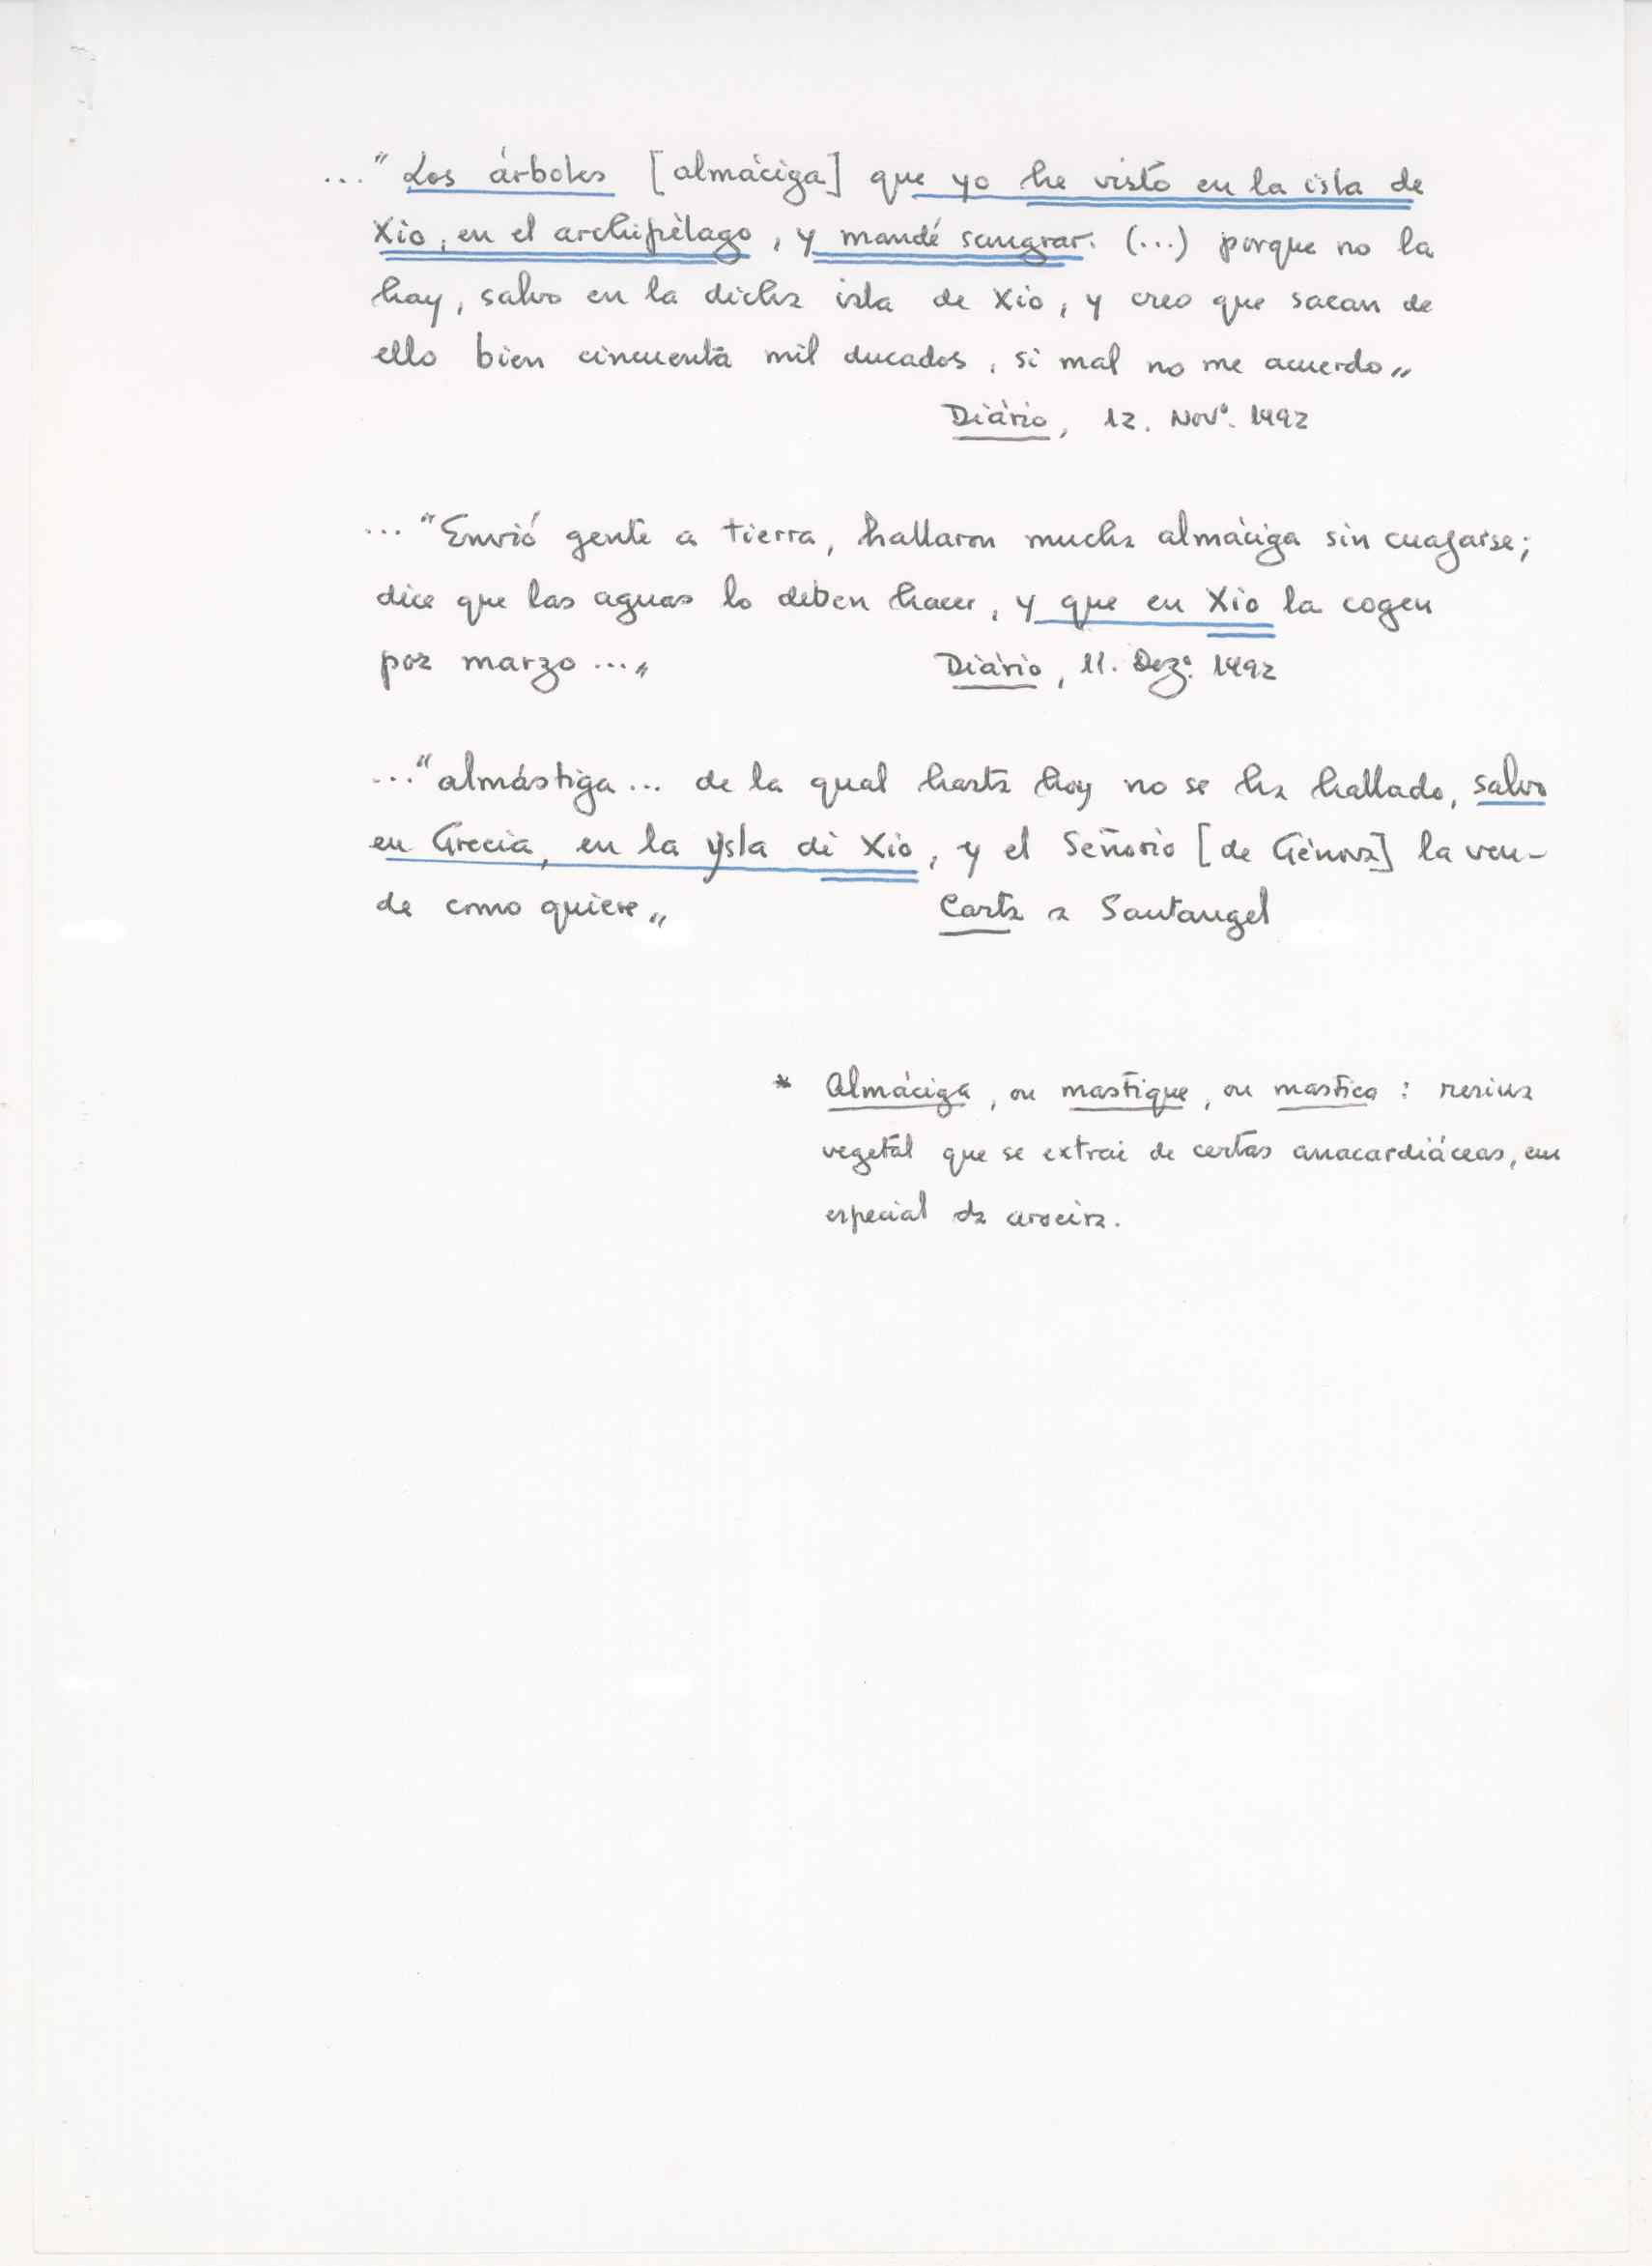 ..." Los árboles [almáciga] que yo he visto en la isla de
Xio, en el archipiélago, y mandé sangrar. (...) porque no la
hay, salvo en la dicha isla de Xio, y creo que sacan de
ello bien cincuenta mil ducados, si mal no me acuerdo"
Diário, 12. Novº. 1492
..."Envió gente a tierra, hallaron mucha almáciga sin cuajarse;
dice que las aguas lo deben hacer, y que en Xio la cogen
por marzo ..."
Diário, 11. Dezº. 1492
..."almástiga... de la qual hasta hoy no se ha hallado, salvo
en Grecia, en la ysla di Xio, y el Señorio [de Génova] la ven-
de como quiere"
Carta a Santangel
* Almáciga, ou mastique, ou mastico : resina
vegetal que se extrai de certas anacardiáceas, em
especial da aroeira.